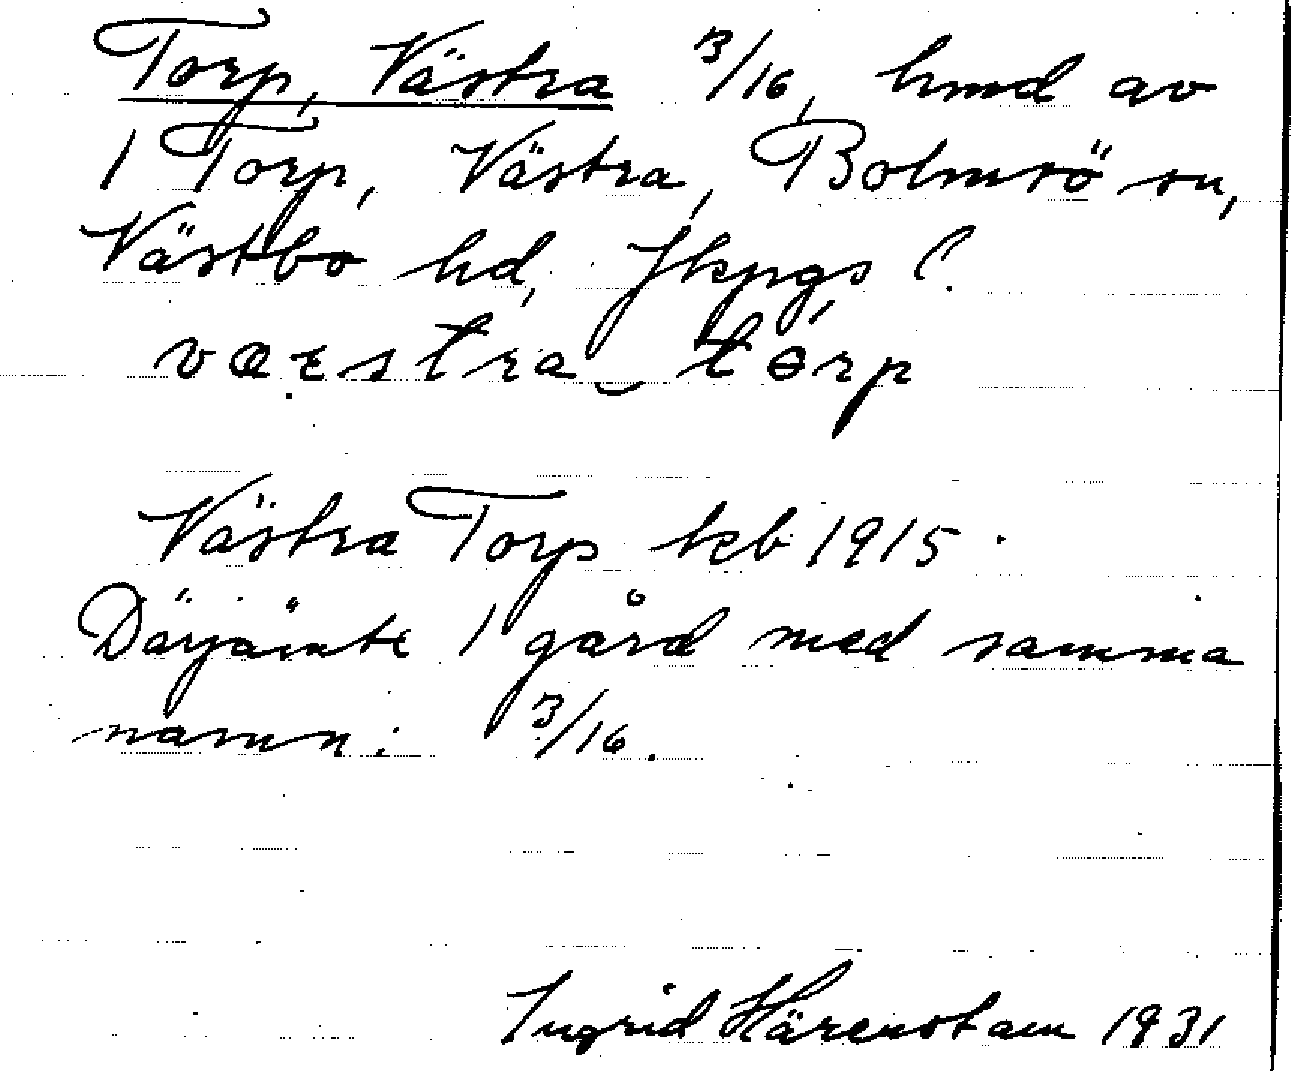 Torp, Västra 3/16, hmd av
1 Torp, Västra, Bolmsö sn,
Västbo hd, Jkpgs l.
væstra‿tórp
Västra Torp kb 1915.
Därjämte 1 gård med samma
namn: 3/16.
Ingrid Härenstam 1931